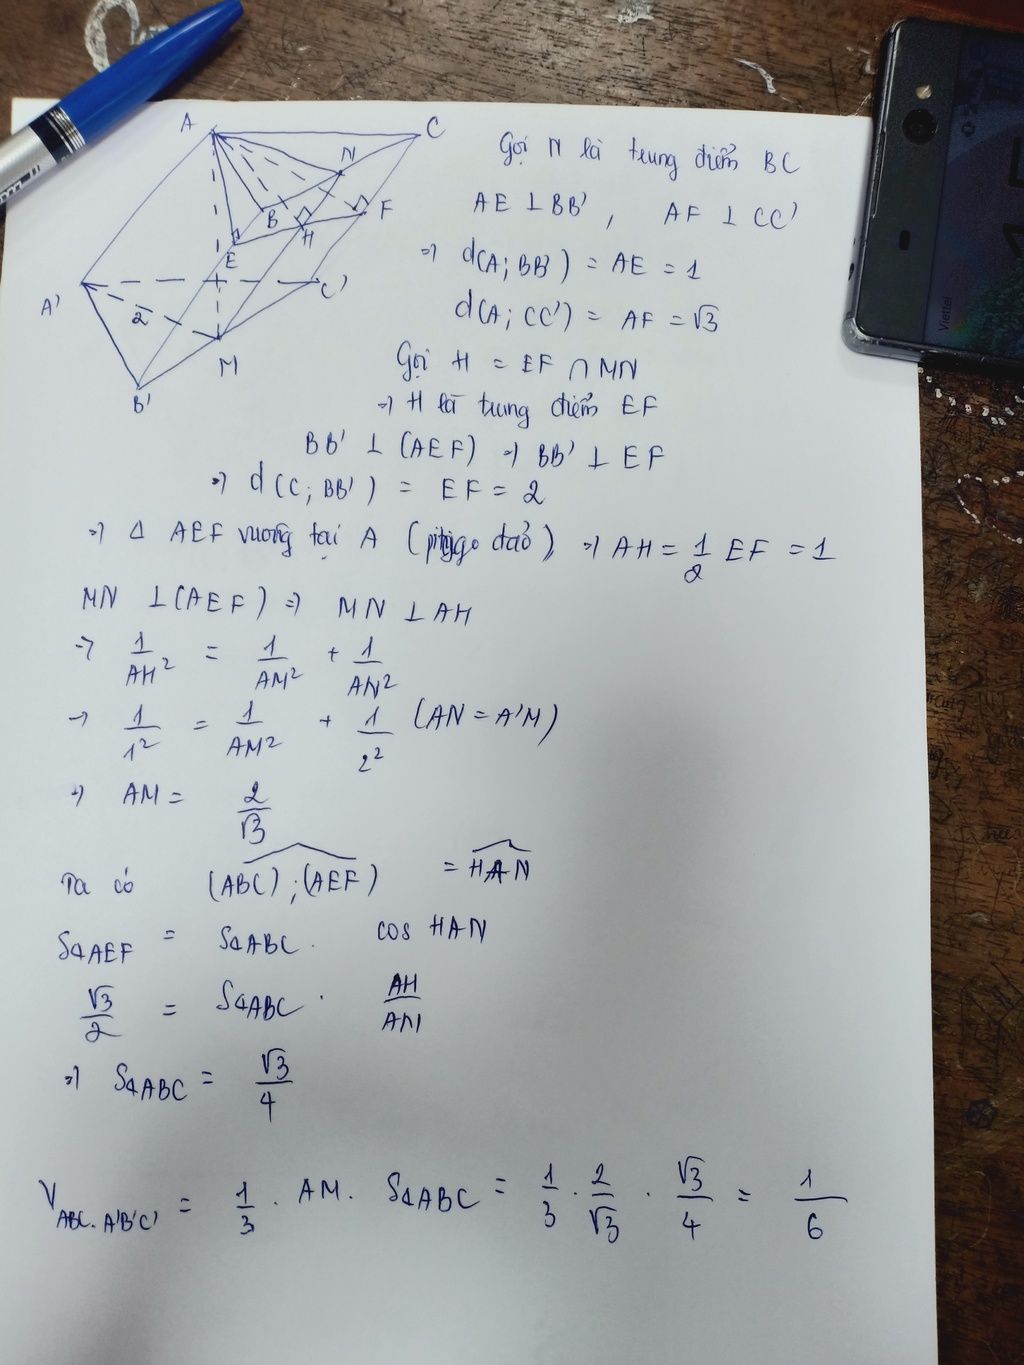 A
C
N
B
H
F
E
A'
C'
2
M
B'
Gọi N là trung điểm BC
AE ⊥ BB' , AF ⊥ CC'
⇒ d(A; BB') = AE = 1
d(A; CC') = AF = √3
Gọi H = EF ∩ MN
⇒ H là trung điểm EF
BB' ⊥ (AEF) ⇒ BB' ⊥ EF
⇒ d(C; BB') = EF = 2
⇒ Δ AEF vuông tại A (pitago đảo) ⇒ AH = 1/2 EF = 1
MN ⊥ (AEF) ⇒ MN ⊥ AH
⇒ 1/AH² = 1/AM² + 1/AN²
⇒ 1/1² = 1/AM² + 1/2² (AN = A'M)
⇒ AM = 2/√3
Ta có (ABC);(AEF) = HAN
SΔAEF = SΔABC . cos HAN
√3/2 = SΔABC . AH/AN
⇒ SΔABC = √3/4
V ABC.A'B'C' = 1/3 . AM . SΔABC = 1/3 . 2/√3 . √3/4 = 1/6
Viettel